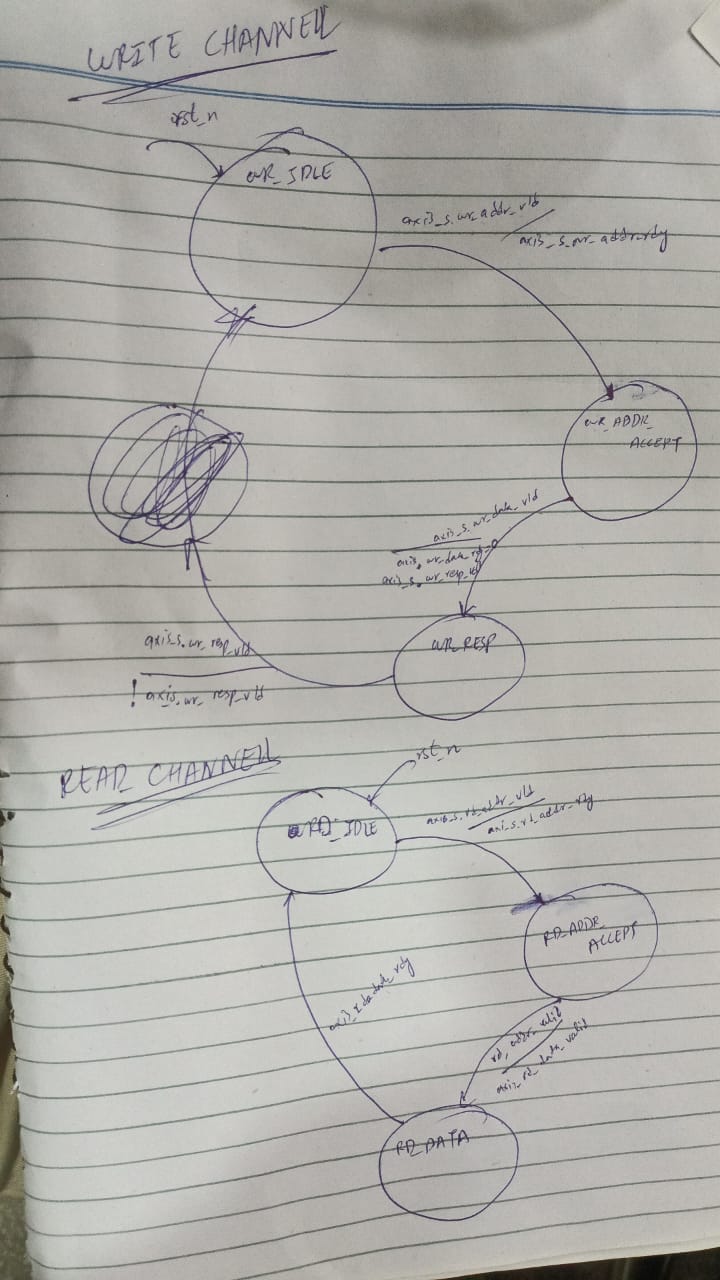 WRITE CHANNELL
rst_n
WR_IDLE
axis_s.wr_addr_vld
axis_s.wr_addr_rdy
WR_ADDR_
ACCEPT
axis_s.wr_data_vld
axis.wr_data_rdy=0
axis_s.wr_resp_vld
WR_RESP
axis_s.wr_resp_vld
! axis.wr_resp_vld
READ CHANNELL
rst_n
RD_IDLE
axis_s.rd_addr_vld
axi_s_rd_addr_rdy
RD_ADDR_
ACCEPT
rd_addr_valid
axis_rd_data_valid
RD_DATA